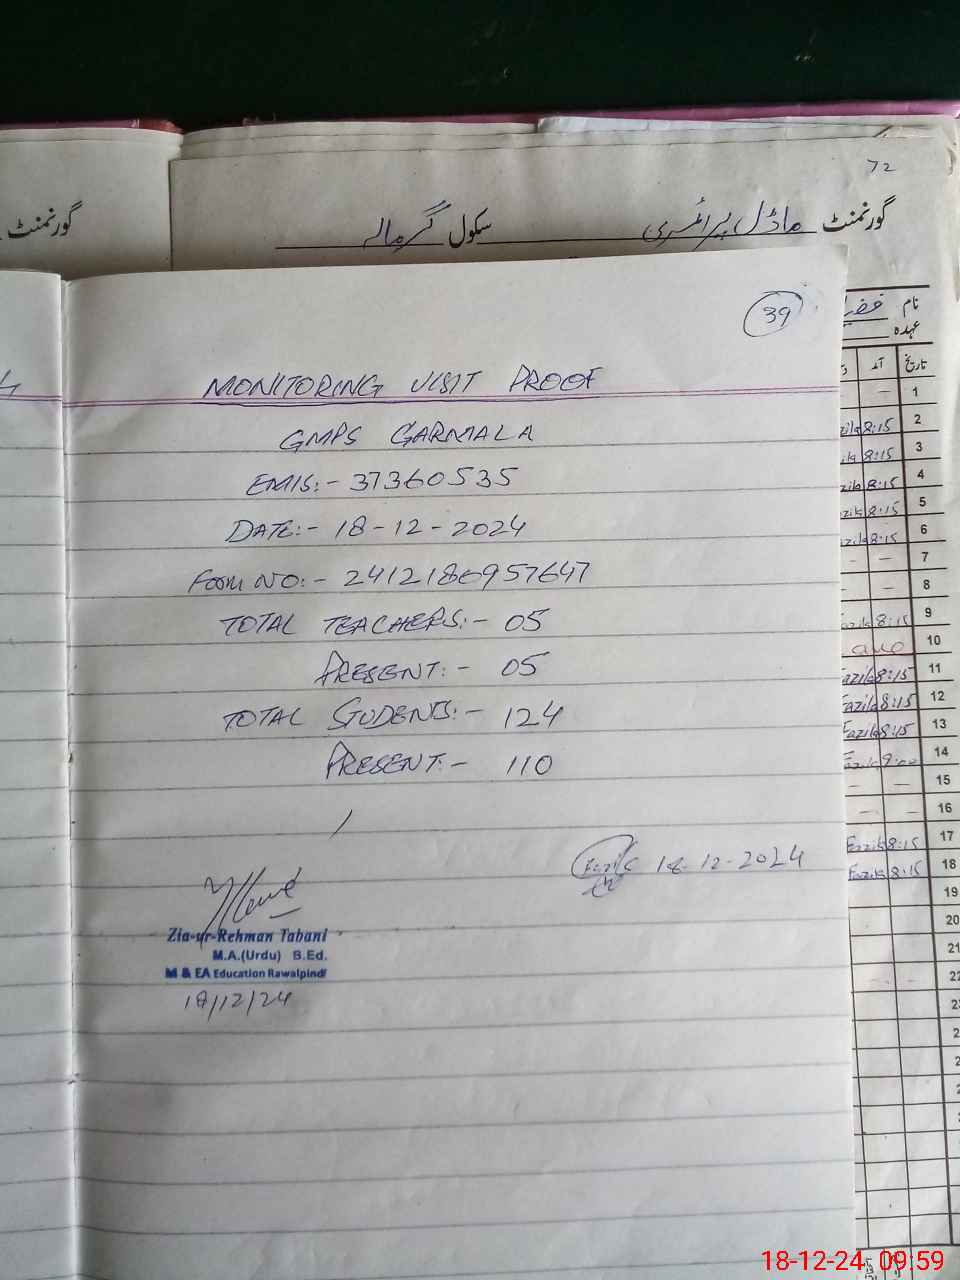 72
گورنمنٹ ماڈل پرائمری سکول گرمالہ
گورنمنٹ
39
MONITORING VISIT PROOF
GMPS GARMALA
EMIS:- 37360535
DATE:- 18-12-2024
Form NO:- 2412180957647
TOTAL TEACHERS:- 05
PRESENT:- 05
TOTAL STUDENTS:- 124
PRESENT:- 110
Fazila 18-12-2024
Zia-ur-Rehman Tabani
M.A.(Urdu) B.Ed.
M & EA Education Rawalpindi
18/12/24
نام
عہدہ
تاریخ آمد
1
2 8:15
3 8:15
4 8:15
5 8:15
6 8:15
7
8
9 8:15
10
11 Fazila 8:15
12 Fazila 8:15
13 Fazila 8:15
14 Fazila 9:00
15
16
17 Fazila 8:15
18 Fazila 8:15
19
20
21
22
18-12-24 09:59